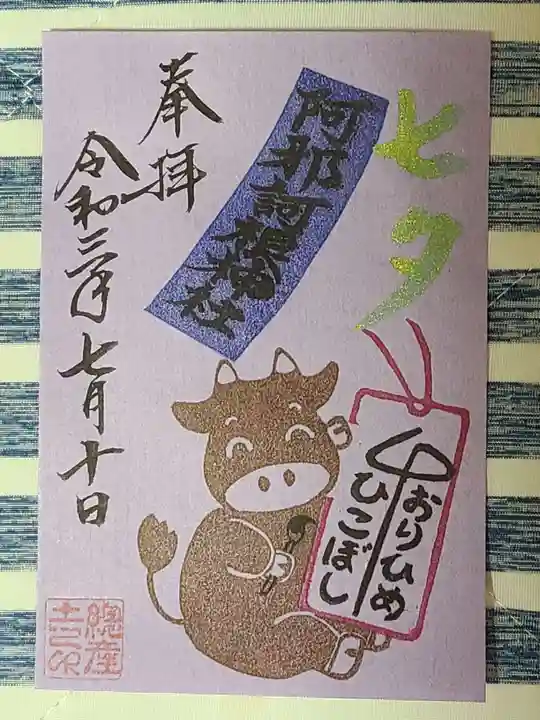 奉拝
令和三年七月十日
阿那訶根神社
七夕
おりひめ
ひこぼし